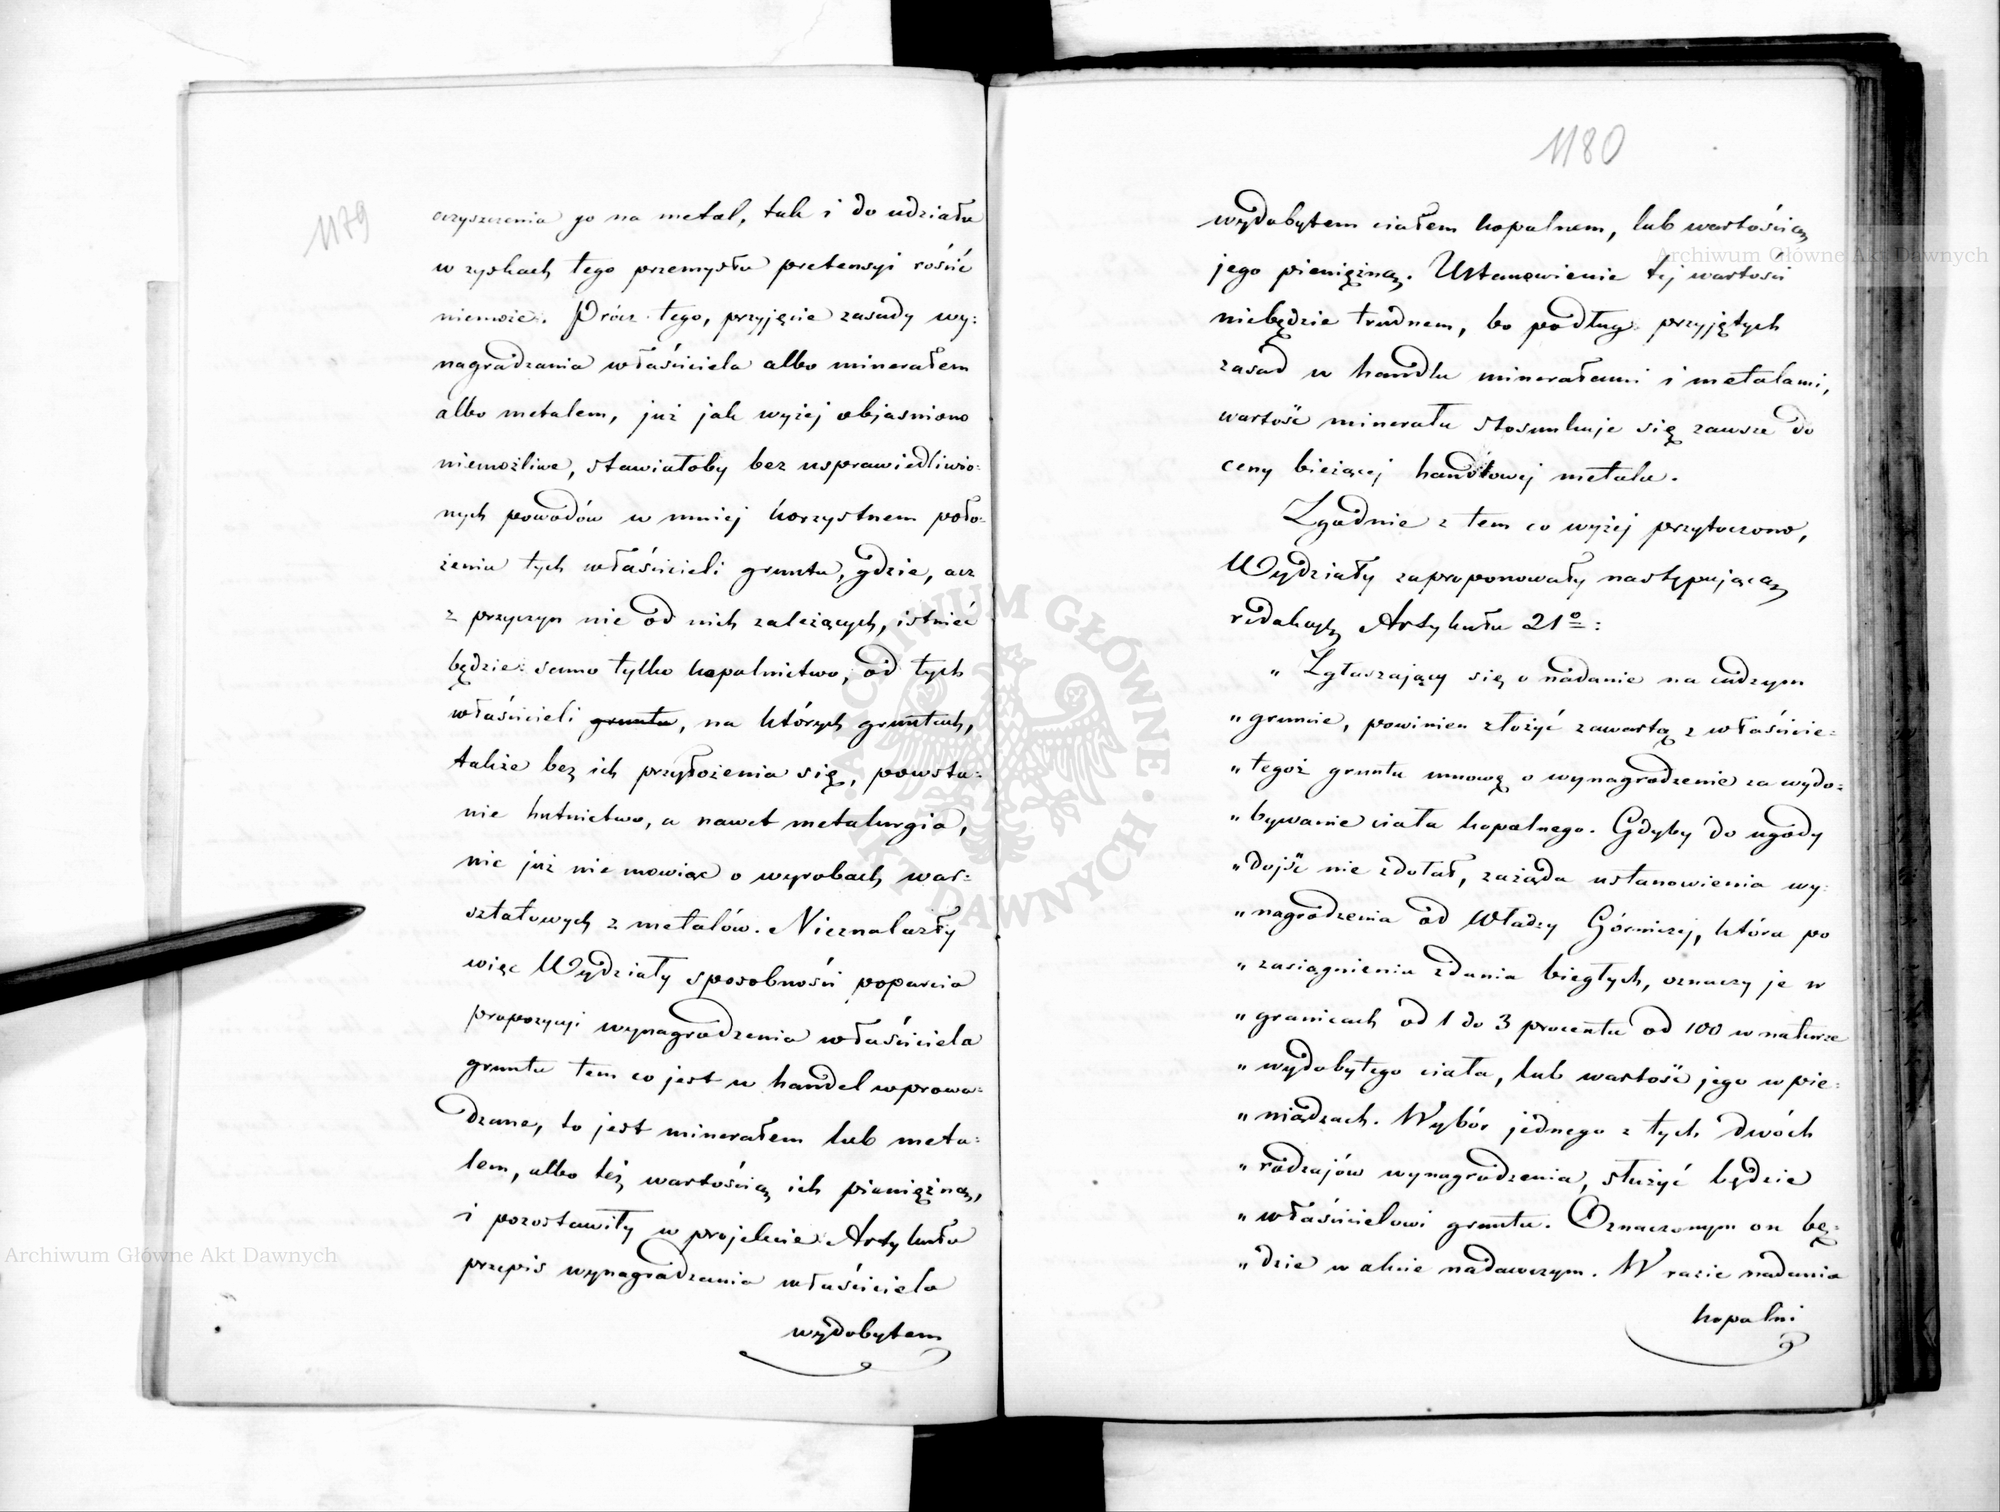 1179
czyszczenia go na metal, tak i do udziału
w zyskach tego przemysłu pretensyi rościć
niemoże. Prócz tego, przyjęcie zasady wy:
nagradzania właściciela albo minerałem
albo metalem, już jak wyżej objasniono
niemożliwe, stawiałoby bez usprawiedliwio:
nych powodów w mniej korzystnem poło:
żeniu tych właścicieli gruntu, gdzie, acz
z przyczyn nie od nich zależących, istnieć
będzie samo tylko kopalnictwo, od tych
właścicieli gruntu, na których gruntach,
także bez ich przyłożenia się, powsta:
nie hutnictwo, a nawet metalurgia,
nic już nie mowiąc o wyrobach war:
sztatowych z metalów. Nieznalazły
więc Wydziały sposobności poparcia
propozycyi wynagrodzenia właściciela
gruntu tem co jest w handel wprowa:
dzane, to jest minerałem lub meta:
lem, albo też wartością ich pieniężną,
i pozostawiły w projekcie Artykułu
przepis wynagradzania właściciela
wydobytem
1180
wydobytem ciałem kopalnem, lub wartością
jego pieniężną. Ustanowienie tej wartości
niebędzie trudnem, bo podług przyjętych
zasad w handlu minerałami i metalami,
wartość minerału stosunkuje się zawsze do
ceny bieżącej handlowej metalu.
Zgodnie z tem co wyżej przytoczono,
Wydziały zaproponowały następującą
redakcyę Artykułu 21º:
„ Zgłaszający się o nadanie na cudzym
„ gruncie, powinien złożyć zawartą z właścicie:
„ tegoż gruntu umowę o wynagrodzenie za wydo:
„ bywanie ciała kopalnego. Gdyby do ugody
„ dojść nie zdołał, zażąda ustanowienia wy:
„ nagrodzenia od Władzy Górniczej, która po
„ zasiągnieniu zdania biegłych, oznaczy je w
„ granicach od 1 do 3 procentu od 100 w naturze
„ wydobytego ciała, lub wartość jego w pie:
„ niądzach. Wybór jednego z tych dwóch
„ rodzajów wynagrodzenia, służyć będzie
„ właścicielowi gruntu. Oznaczonym on bę:
„ dzie w akcie nadawczym. W razie nadania
kopalni
ARCHIWUM GŁÓWNE AKT DAWNYCH
Archiwum Główne Akt Dawnych
Archiwum Główne Akt Dawnych